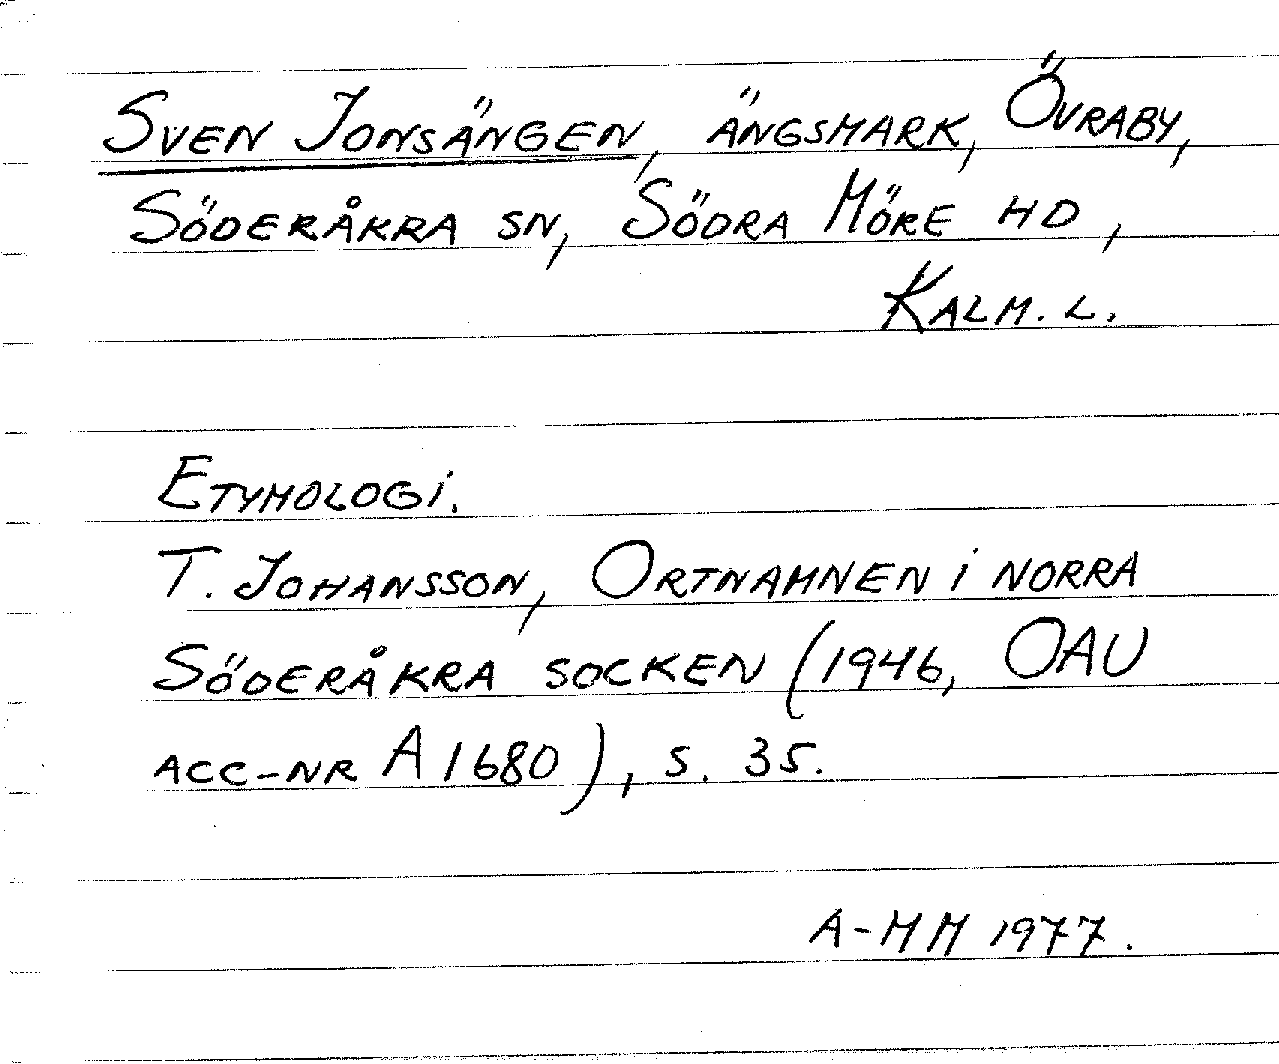 SVEN JONSÄNGEN, ÄNGSMARK, ÖVRABY,
SÖDERÅKRA SN, SÖDRA MÖRE HD,
KALM. L.
ETYMOLOGI.
T. JOHANSSON, ORTNAMNEN I NORRA
SÖDERÅKRA SOCKEN (1946, OAU
ACC-NR A1680), S. 35.
A-MM 1977.